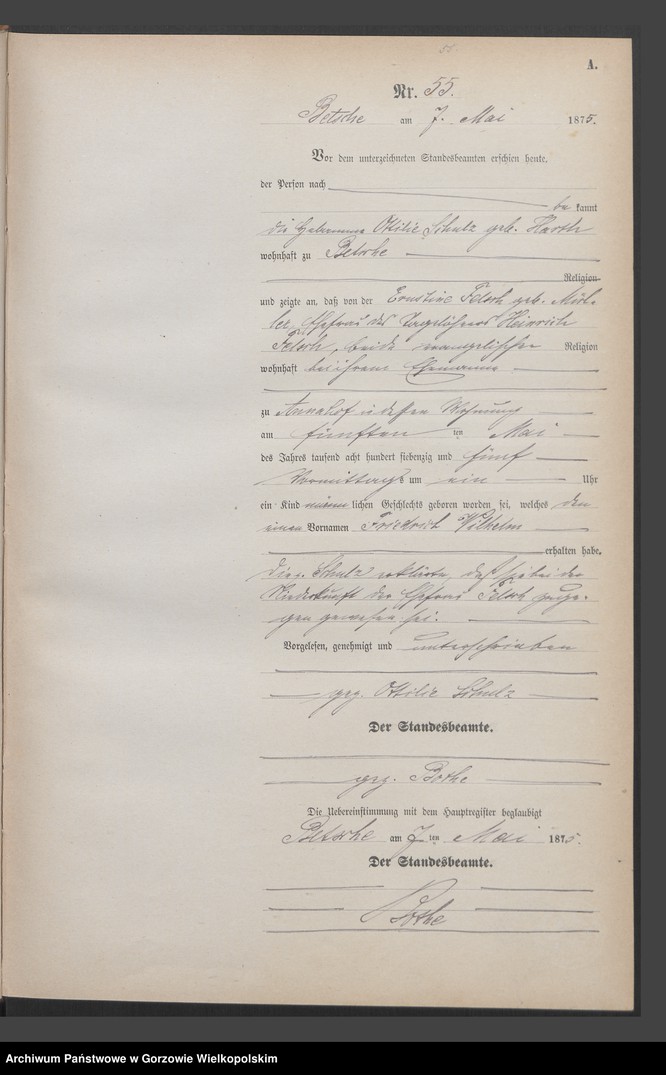 A.
Nr. 55.
Betsche am 7. Mai 1875.
Vor dem unterzeichneten Standesbeamten erschien heute,
der Person nach
be kannt
die Hebamme Ottilie Schulz geb. Harth
wohnhaft zu Betsche
Religion
und zeigte an, daß von der Ernstine Felsch geb. Müh-
ler, Ehefrau des Tagelöhners Heinrich
Felsch, beide evangelischer Religion
wohnhaft bei ihrem Ehemanne
zu Annahof in dessen Wohnung
am fünften ten Mai
des Jahres tausend acht hundert siebenzig und fünf
Vormittags um ein Uhr
ein Kind männlichen Geschlechts geboren worden sei, welches den
einen Vornamen Friedrich Wilhelm
erhalten habe.
Die Schulz erklärte, daß sie bei der
Niederkunft der Ehefrau Felsch zuge-
gen gewesen sei.
Vorgelesen, genehmigt und unterschrieben
gez. Ottilie Schulz
Der Standesbeamte.
gez. Bothe
Die Uebereinstimmung mit dem Hauptregister beglaubigt
Betsche am 7 ten Mai 1875.
Der Standesbeamte.
Bothe
Archiwum Państwowe w Gorzowie Wielkopolskim